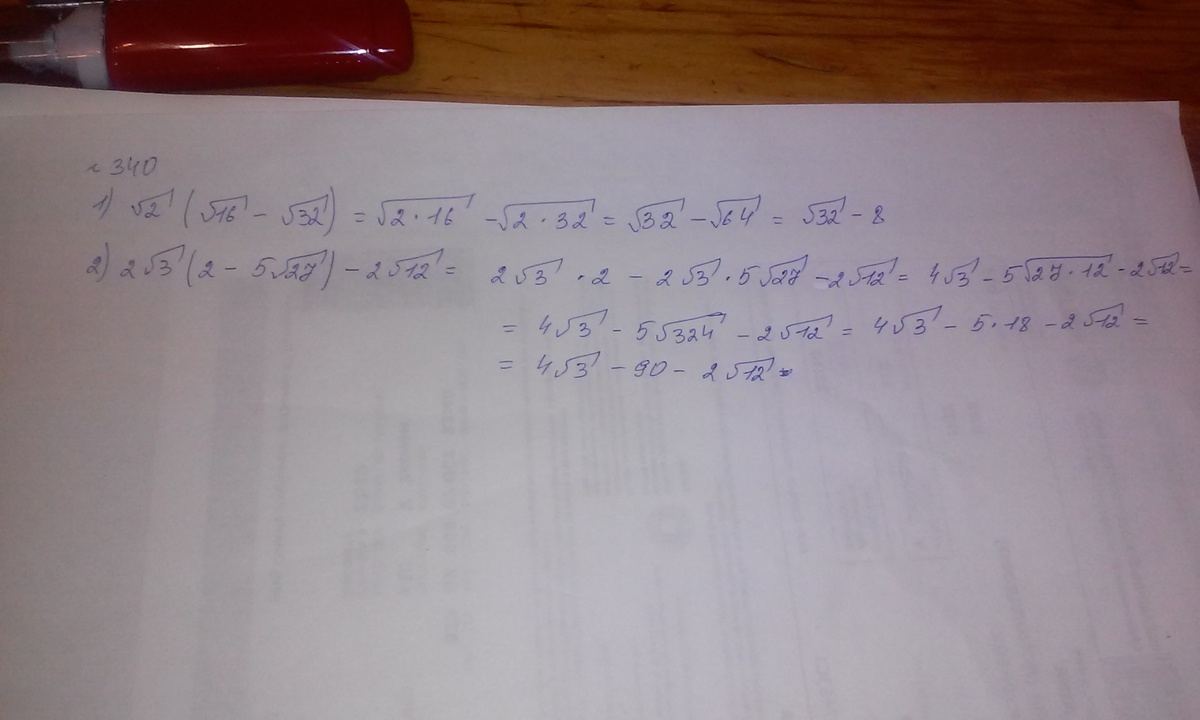 № 340
1) √2 (√16 - √32) = √2·16 - √2·32 = √32 - √64 = √32 - 8
2) 2√3 (2 - 5√27) - 2√12 = 2√3 · 2 - 2√3 · 5√27 - 2√12 = 4√3 - 5√27·12 - 2√12 =
= 4√3 - 5√324 - 2√12 = 4√3 - 5·18 - 2√12 =
= 4√3 - 90 - 2√12 =